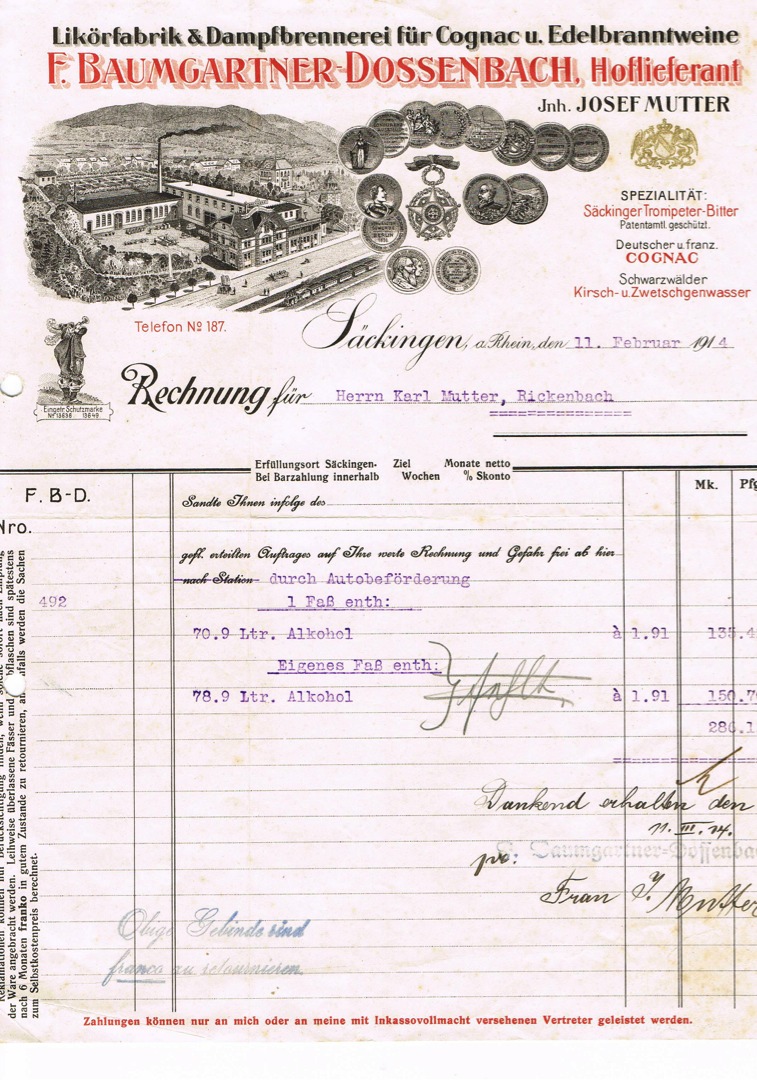 Likörfabrik & Dampfbrennerei für Cognac u. Edelbranntweine
F. BAUMGARTNER-DOSSENBACH, Hoflieferant
Jnh. JOSEF MUTTER
SPEZIALITÄT:
Säckinger Trompeter-Bitter
Patentamtl. geschützt.
Deutscher u. franz.
COGNAC
Schwarzwälder
Kirsch- u. Zwetschgenwasser
Telefon Nº 187.
Säckingen, a. Rhein, den 11. Februar 1914
Eingetr. Schutzmarke
Nr 13638 13649.
Rechnung für Herrn Karl Mutter, Rickenbach
Erfüllungsort Säckingen. Ziel Monate netto
Bei Barzahlung innerhalb Wochen % Skonto
Mk. Pfg
F. B-D.
Nro.
Sandte Ihnen infolge des
gefl. erteilten Auftrages auf Ihre werte Rechnung und Gefahr frei ab hier
nach Station durch Autobeförderung
492 1 Faß enth:
70.9 Ltr. Alkohol à 1.91 135.4
Eigenes Faß enth:
78.9 Ltr. Alkohol à 1.91 150.7
286.1
Dankend erhalten den
11. III. 14.
pr. F. Baumgartner-Dossenba
Frau J. Mutter
Obige Gebinde sind
franco zu retournieren.
der Ware angebracht werden. Leihweise überlassene Fässer und
nach 6 Monaten franko in gutem Zustande zu retournieren,
zum Selbstkostenpreis berechnet.
Zahlungen können nur an mich oder an meine mit Inkassovollmacht versehenen Vertreter geleistet werden.